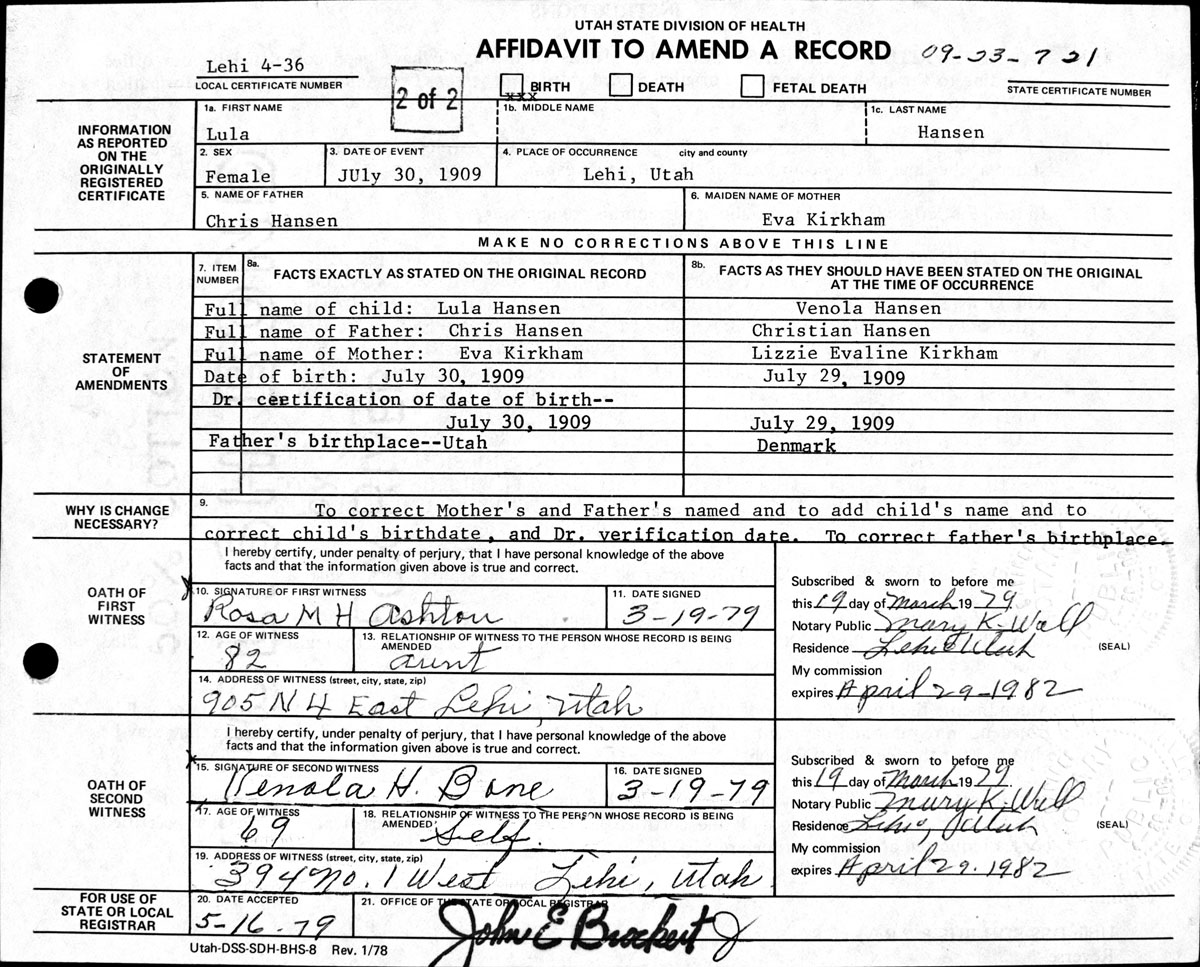 UTAH STATE DIVISION OF HEALTH
AFFIDAVIT TO AMEND A RECORD
Lehi 4-36
LOCAL CERTIFICATE NUMBER
2 of 2
xxx
BIRTH
DEATH
FETAL DEATH
STATE CERTIFICATE NUMBER
INFORMATION AS REPORTED ON THE ORIGINALLY REGISTERED CERTIFICATE
1a. FIRST NAME
Lula
1b. MIDDLE NAME
1c. LAST NAME
Hansen
2. SEX
Female
3. DATE OF EVENT
JUly 30, 1909
4. PLACE OF OCCURRENCE city and county
Lehi, Utah
5. NAME OF FATHER
Chris Hansen
6. MAIDEN NAME OF MOTHER
Eva Kirkham
MAKE NO CORRECTIONS ABOVE THIS LINE
STATEMENT OF AMENDMENTS
7. ITEM NUMBER
8a. FACTS EXACTLY AS STATED ON THE ORIGINAL RECORD
8b. FACTS AS THEY SHOULD HAVE BEEN STATED ON THE ORIGINAL AT THE TIME OF OCCURRENCE
Full name of child: Lula Hansen
Venola Hansen
Full name of Father: Chris Hansen
Christian Hansen
Full name of Mother: Eva Kirkham
Lizzie Evaline Kirkham
Date of birth: July 30, 1909
July 29, 1909
Dr. certification of date of birth--
July 30, 1909
July 29, 1909
Father's birthplace--Utah
Denmark
WHY IS CHANGE NECESSARY?
9. To correct Mother's and Father's named and to add child's name and to
correct child's birthdate, and Dr. verification date. To correct father's birthplace.
OATH OF FIRST WITNESS
I hereby certify, under penalty of perjury, that I have personal knowledge of the above
facts and that the information given above is true and correct.
x
10. SIGNATURE OF FIRST WITNESS
Rosa M H Ashton
11. DATE SIGNED
3-19-79
12. AGE OF WITNESS
82
13. RELATIONSHIP OF WITNESS TO THE PERSON WHOSE RECORD IS BEING AMENDED
aunt
14. ADDRESS OF WITNESS (street, city, state, zip)
905 N 4 East Lehi, Utah
Subscribed & sworn to before me
this 19 day of March 1979
Notary Public Mary K. Wall
Residence Lehi Utah
(SEAL)
My commission
expires April 29-1982
OATH OF SECOND WITNESS
I hereby certify, under penalty of perjury, that I have personal knowledge of the above
facts and that the information given above is true and correct.
x
15. SIGNATURE OF SECOND WITNESS
Venola H. Bone
16. DATE SIGNED
3-19-79
17. AGE OF WITNESS
69
18. RELATIONSHIP OF WITNESS TO THE PERSON WHOSE RECORD IS BEING AMENDED
Self.
19. ADDRESS OF WITNESS (street, city, state, zip)
394 No. 1 West Lehi, Utah
Subscribed & sworn to before me
this 19 day of March 1979
Notary Public Mary K. Wall
Residence Lehi, Utah
(SEAL)
My commission
expires April 29. 1982
FOR USE OF STATE OR LOCAL REGISTRAR
20. DATE ACCEPTED
5-16-79
21. OFFICE OF THE STATE OR LOCAL REGISTRAR
John E Brockert
Utah-DSS-SDH-BHS-8 Rev. 1/78